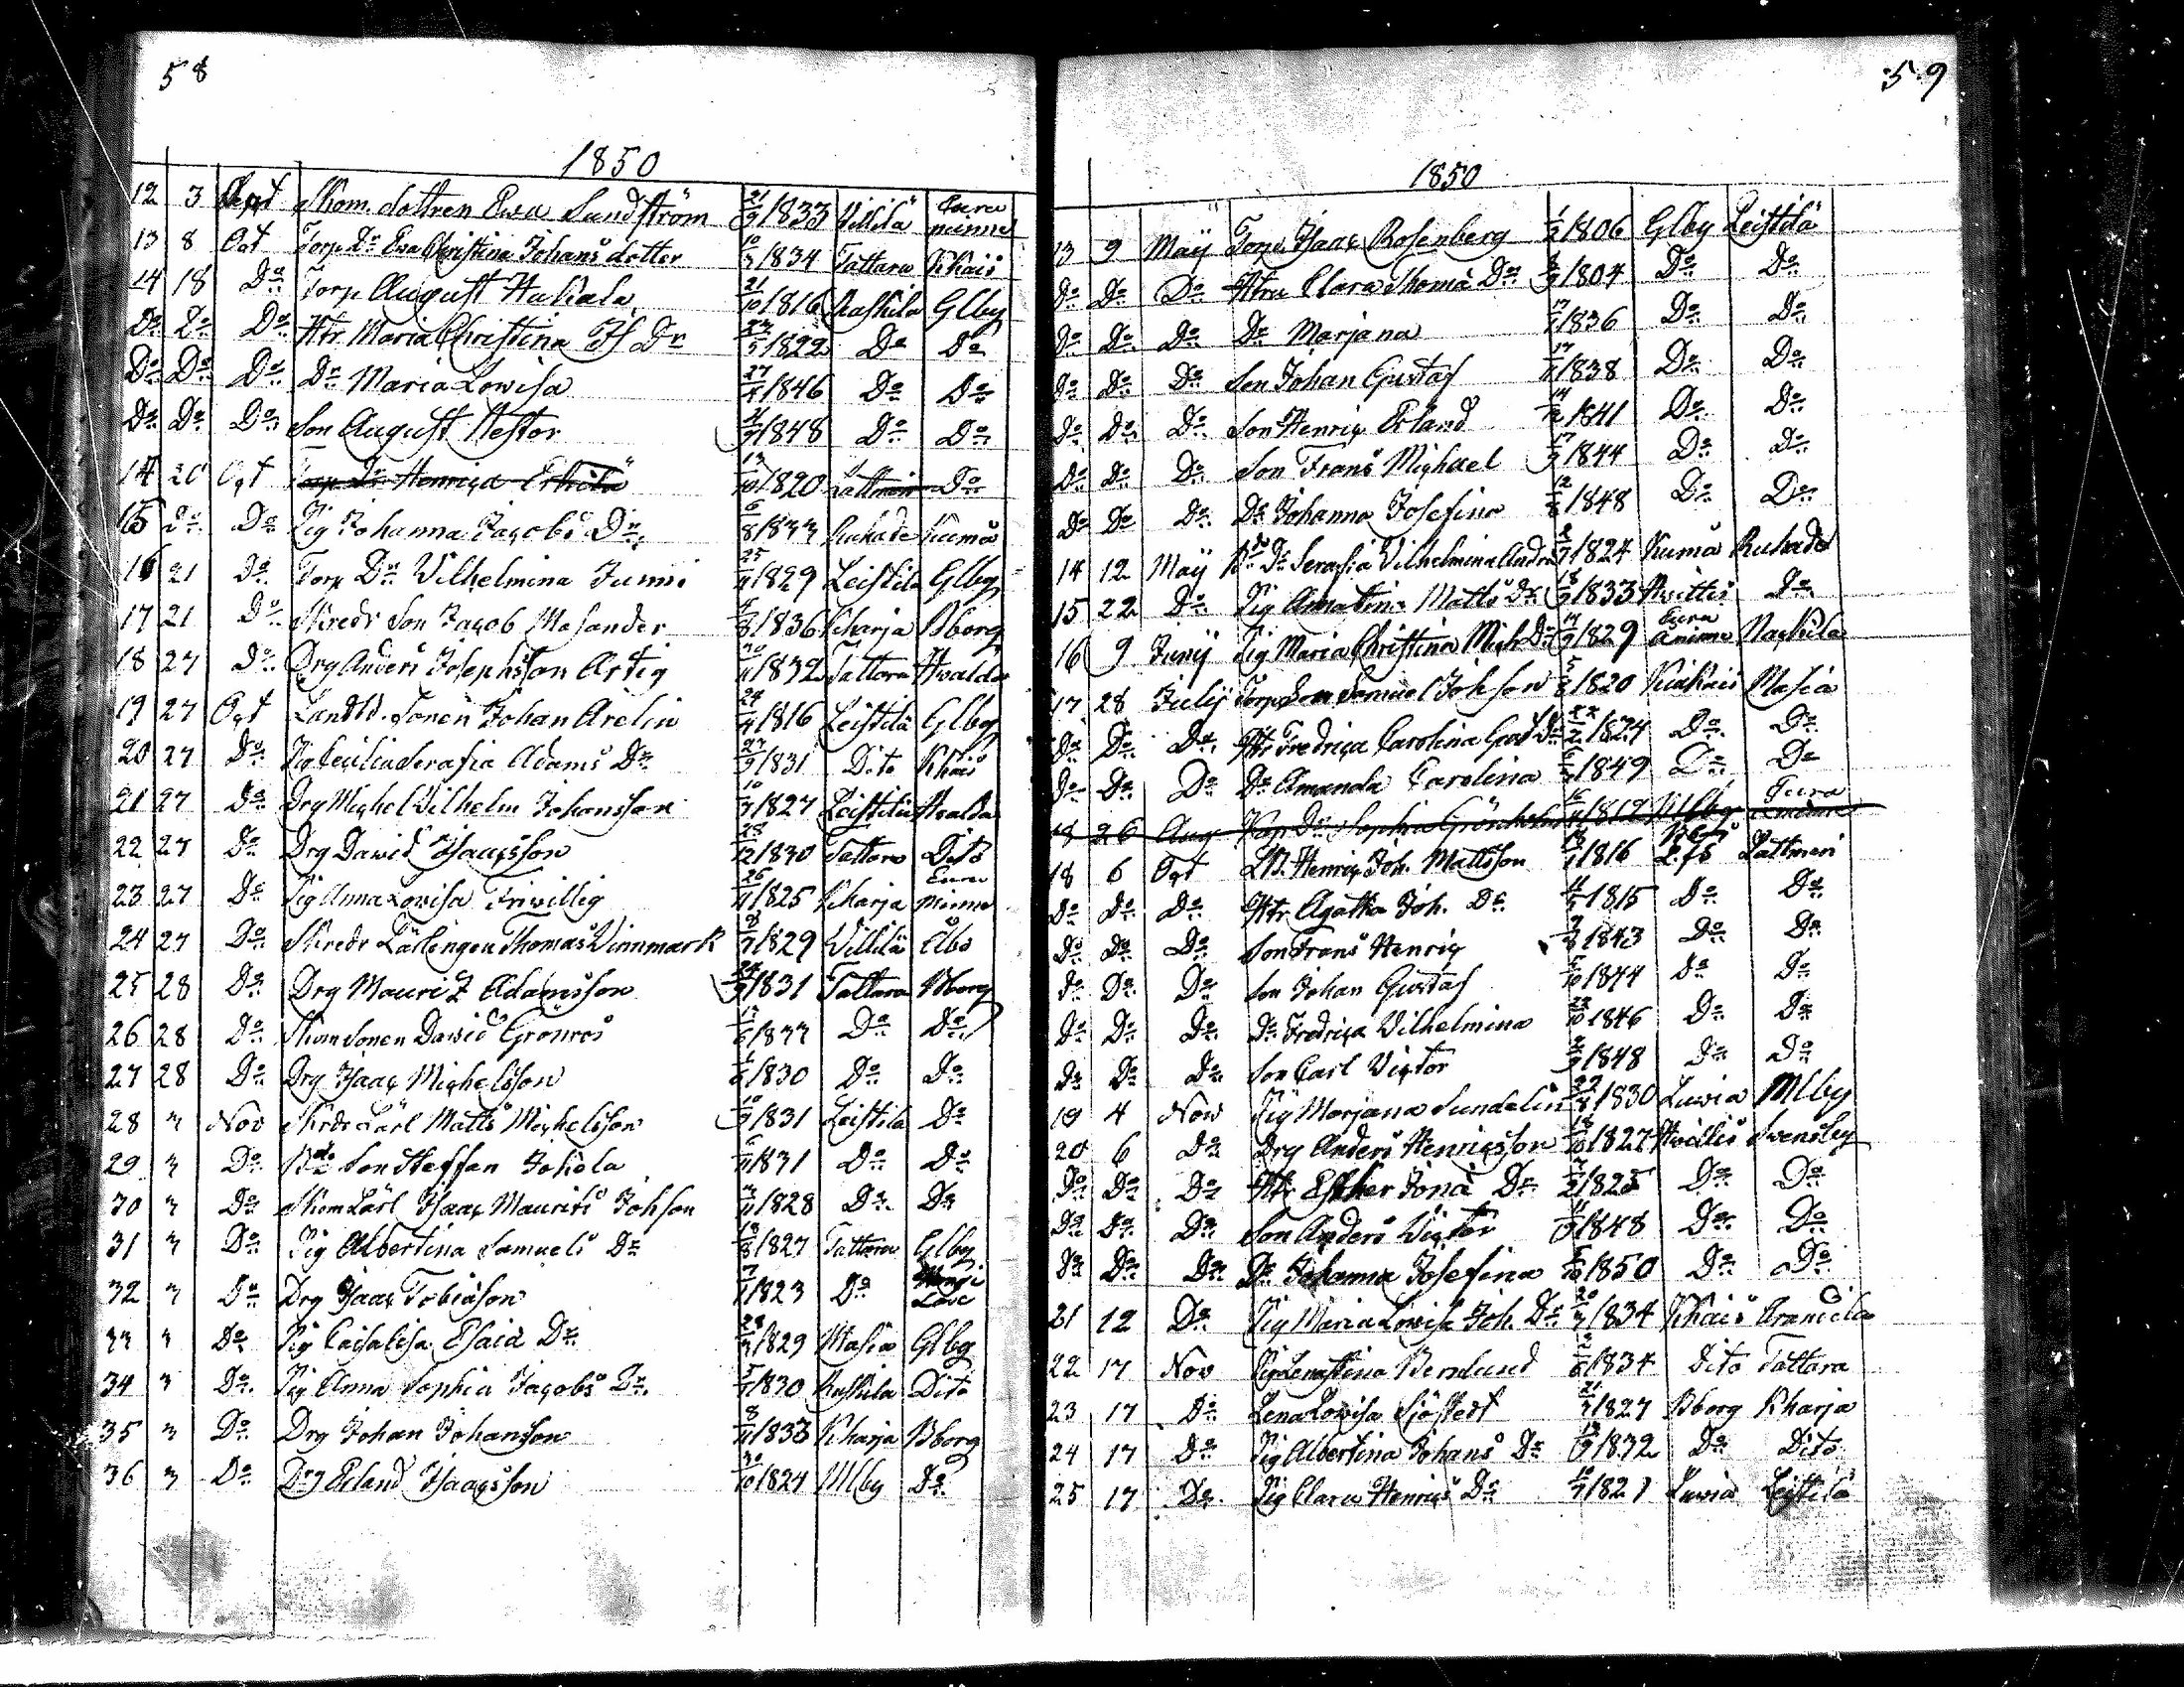 58
1850
12 3 Sept Skom. dottren Ewa Sundström 21/9 1833 Villilä Eura minne
13 8 Oct Torp Dr Eva Christina Johans dotter 10/3 1834 Tattara Khais
14 18 Do Torp August Hukala 21/10 1816 Raskila Glby
Do Do Do Hr Maria Christina Is Dr 1822 Do Do
Do Do Do Dr Maria Lowisa 27/4 1846 Do Do
Do Do Do Son August Nestor 1848 Do Do
14 20 Oct Torp Dr Henrica Erkilä 13/10 1820 Lattmeri Do
15 Do Do Pig Johanna Jacobs Dr 6/8 1833 Ruhade Kumå
16 21 Do Torp Dr Vilhelmina Junni 25/11 1829 Leistila Glby
17 21 Do Skredr Son Jacob Masander 1836 Kharja Bborg
18 27 Do Drg Anders Josephsson Artig 1832 Tattara Hvalda
19 27 Oct Landtb. Sonen Johan Arelin 24/4 1816 Leistilä Glby
20 27 Do Pig Ceciliaserafia Adams Dr 27/9 1831 Dito Khais
21 27 Do Drg Michel Vilhelm Johansson 10/7 1827 Leistilä Hvalda
22 27 Do Drg David Isacsson 1830 Tattara Dito
23 27 Do Pig Anna Lowisa Friwillig 26/11 1825 Kharja Eura minne
24 27 Do Skredr Lärlingen Thomas Vinnmark 1829 Villilä Åbo
25 28 Do Drg Mauritz Adamsson 1831 Tattara Bborg
26 28 Do Skom Sonen David Grönros 13/6 1833 Do Do
27 28 Do Drg Isaac Michelsson 1830 Do Do
28 3 Nov Skrdr Lärl Matts Michelsson 10/9 1831 Leistila Do
29 3 Do Bde Son Steffan Jokela 1831 Do Do
30 3 Do Skom Lärl Isaac Maurits Johson 1828 Do Do
31 3 Do Pig Albertina Samuels Dr 1827 Tattara Glby
32 3 Do Drg Isaac Tobiason 1823 Do
33 3 Do Pig Caisalisa Esaia Dr 1829 Masia Glby
34 3 Do Pig Anna Sophia Jacobs Dr 1830 Raskila Dito
35 3 Do Drg Johan Johansson 8/11 1833 Kharja Bborg
36 3 Do Drg Erland Isaacsson 30/10 1824 Mlby Do
59
1850
13 9 Maij Torp Isaac Rosenberg 1/2 1806 Glby Leistilä
Do Do Do Hru Clara Thoma Dr 8/9 1804 Do Do
Do Do Do Dr Marjana 1836 Do Do
Do Do Do Son Johan Gustaf 1838 Do Do
Do Do Do Son Henric Erland 1841 Do Do
Do Do Do Son Frans Michael 17/9 1844 Do Do
Do Do Do Dr Johanna Josefina 1848 Do Do
14 12 Maij Bde Dr Serafia Vilhelmina Andrs 1824 Kumå Ruhade
15 22 Do Pig Annastina Matts Dr 18/9 1833 Hvittis Do
16 9 Junij Pig Maria Christina Mich Dr 1829 Eura åminne Naskila
17 28 Julij Torp Son Samuel Johson 1820 Kiukais Masia
Do Do Do Hr Fredrica Carolina Gust Dr 1824 Do Do
Do Do Do Dr Amanda Carolina 1849 Do Do
18 26 Aug Dr Sophia Grönholm 1819 Mlby Eura åminne
18 6 Oct LB. Henric Joh. Mattsson 1816 Bborg L.fs Lattmeri
Do Do Do Hr Agatha Joh. Dr 1815 Do Do
Do Do Do Son Frans Henric 1843 Do Do
Do Do Do Son Johan Gustaf 1844 Do Do
Do Do Do Dr Fredrica Vilhelmina 22/10 1846 Do Do
Do Do Do Son Carl Victor 1848 Do Do
19 4 Nov Pig Marjana Sundelin 1830 Luvia Mlby
20 6 Do Drg Anders Henricsson 1827 Hvittis Svensby
Do Do Do Hr Esther Jona Dr 1825 Do Do
Do Do Do Son Anders Victor 1848 Do Do
Do Do Do Dr Johanna Josefina 1850 Do Do
21 12 Do Pig Maria Lovisa Joh. Dr 20/3 1834 Khais Brancila
22 17 Nov Pig Lenastina Bernlund 1834 Dito Tattara
23 17 Do Lena Lovisa Sjöstedt 21/7 1827 Bborg Kharja
24 17 Do Pig Albertina Johans Dr 1832 Do Dito
25 17 Do Pig Clara Henrics Dr 1821 Luvia Leistilä